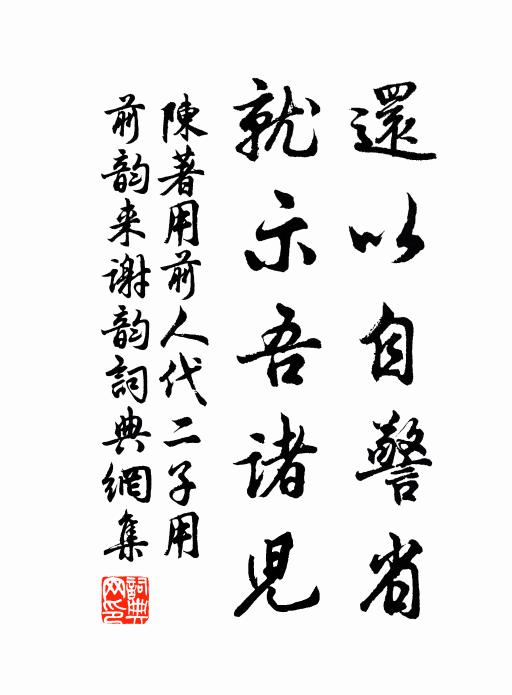 還以自警省
就示吾諸児
陳著用前人代二子用
前韵来謝韵詞典網集
詞典网印